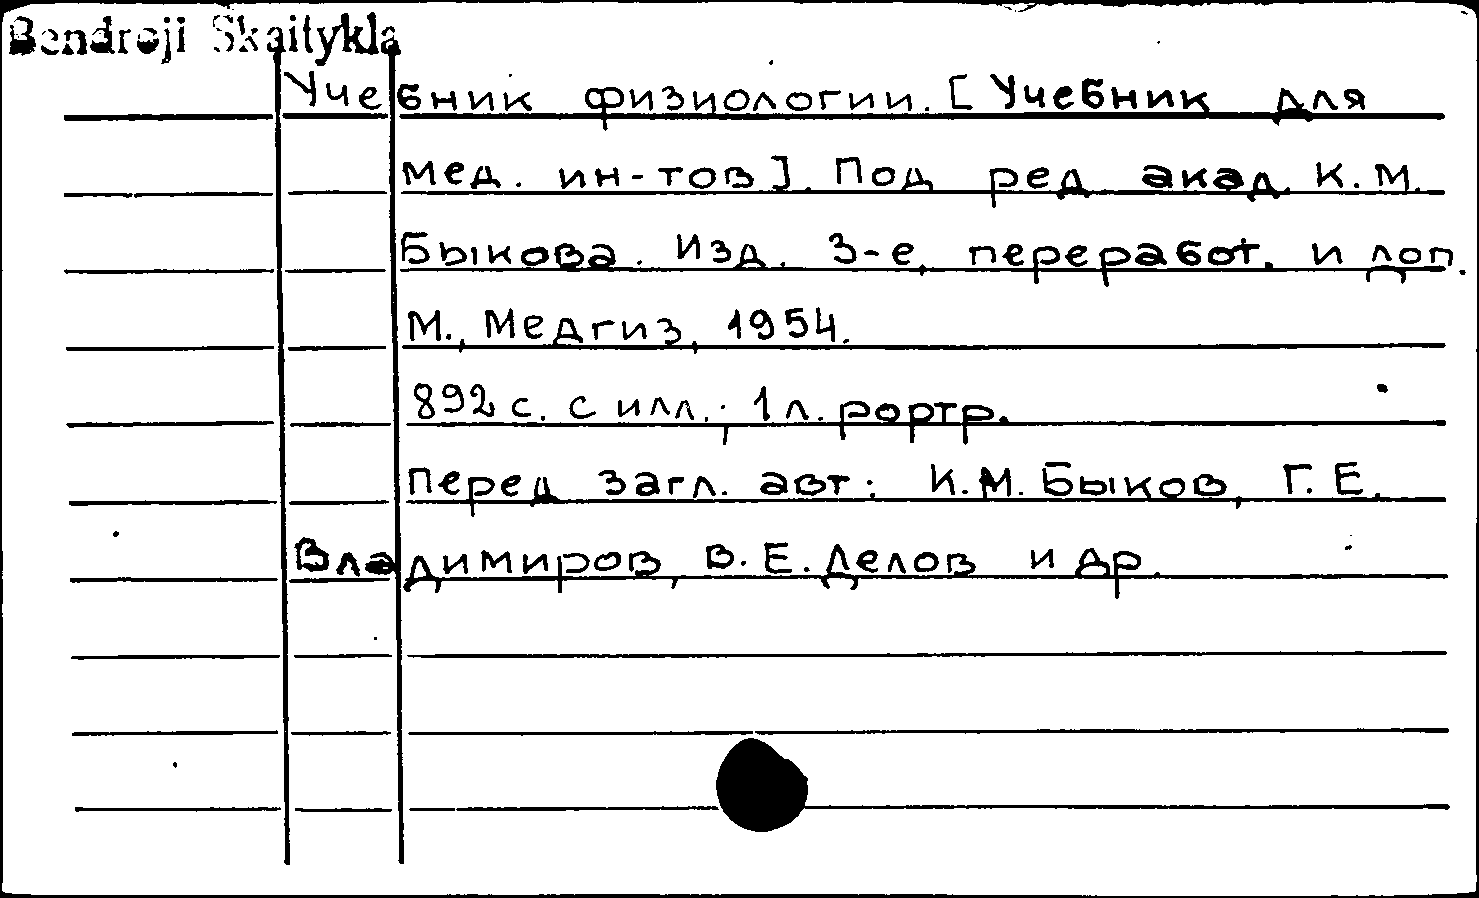 Bendroji Skaitykla
Учебник физиологии. [Учебник для
мед. ин-тов]. Под ред акад. К.М.
Быкова. Изд. 3-е, переработ. и доп.
М., Медгиз, 1954.
892 с. с илл.; 1 л. рортр.
Перед загл. авт: К.М. Быков, Г.Е.
Владимиров, В.Е. Делов и др.